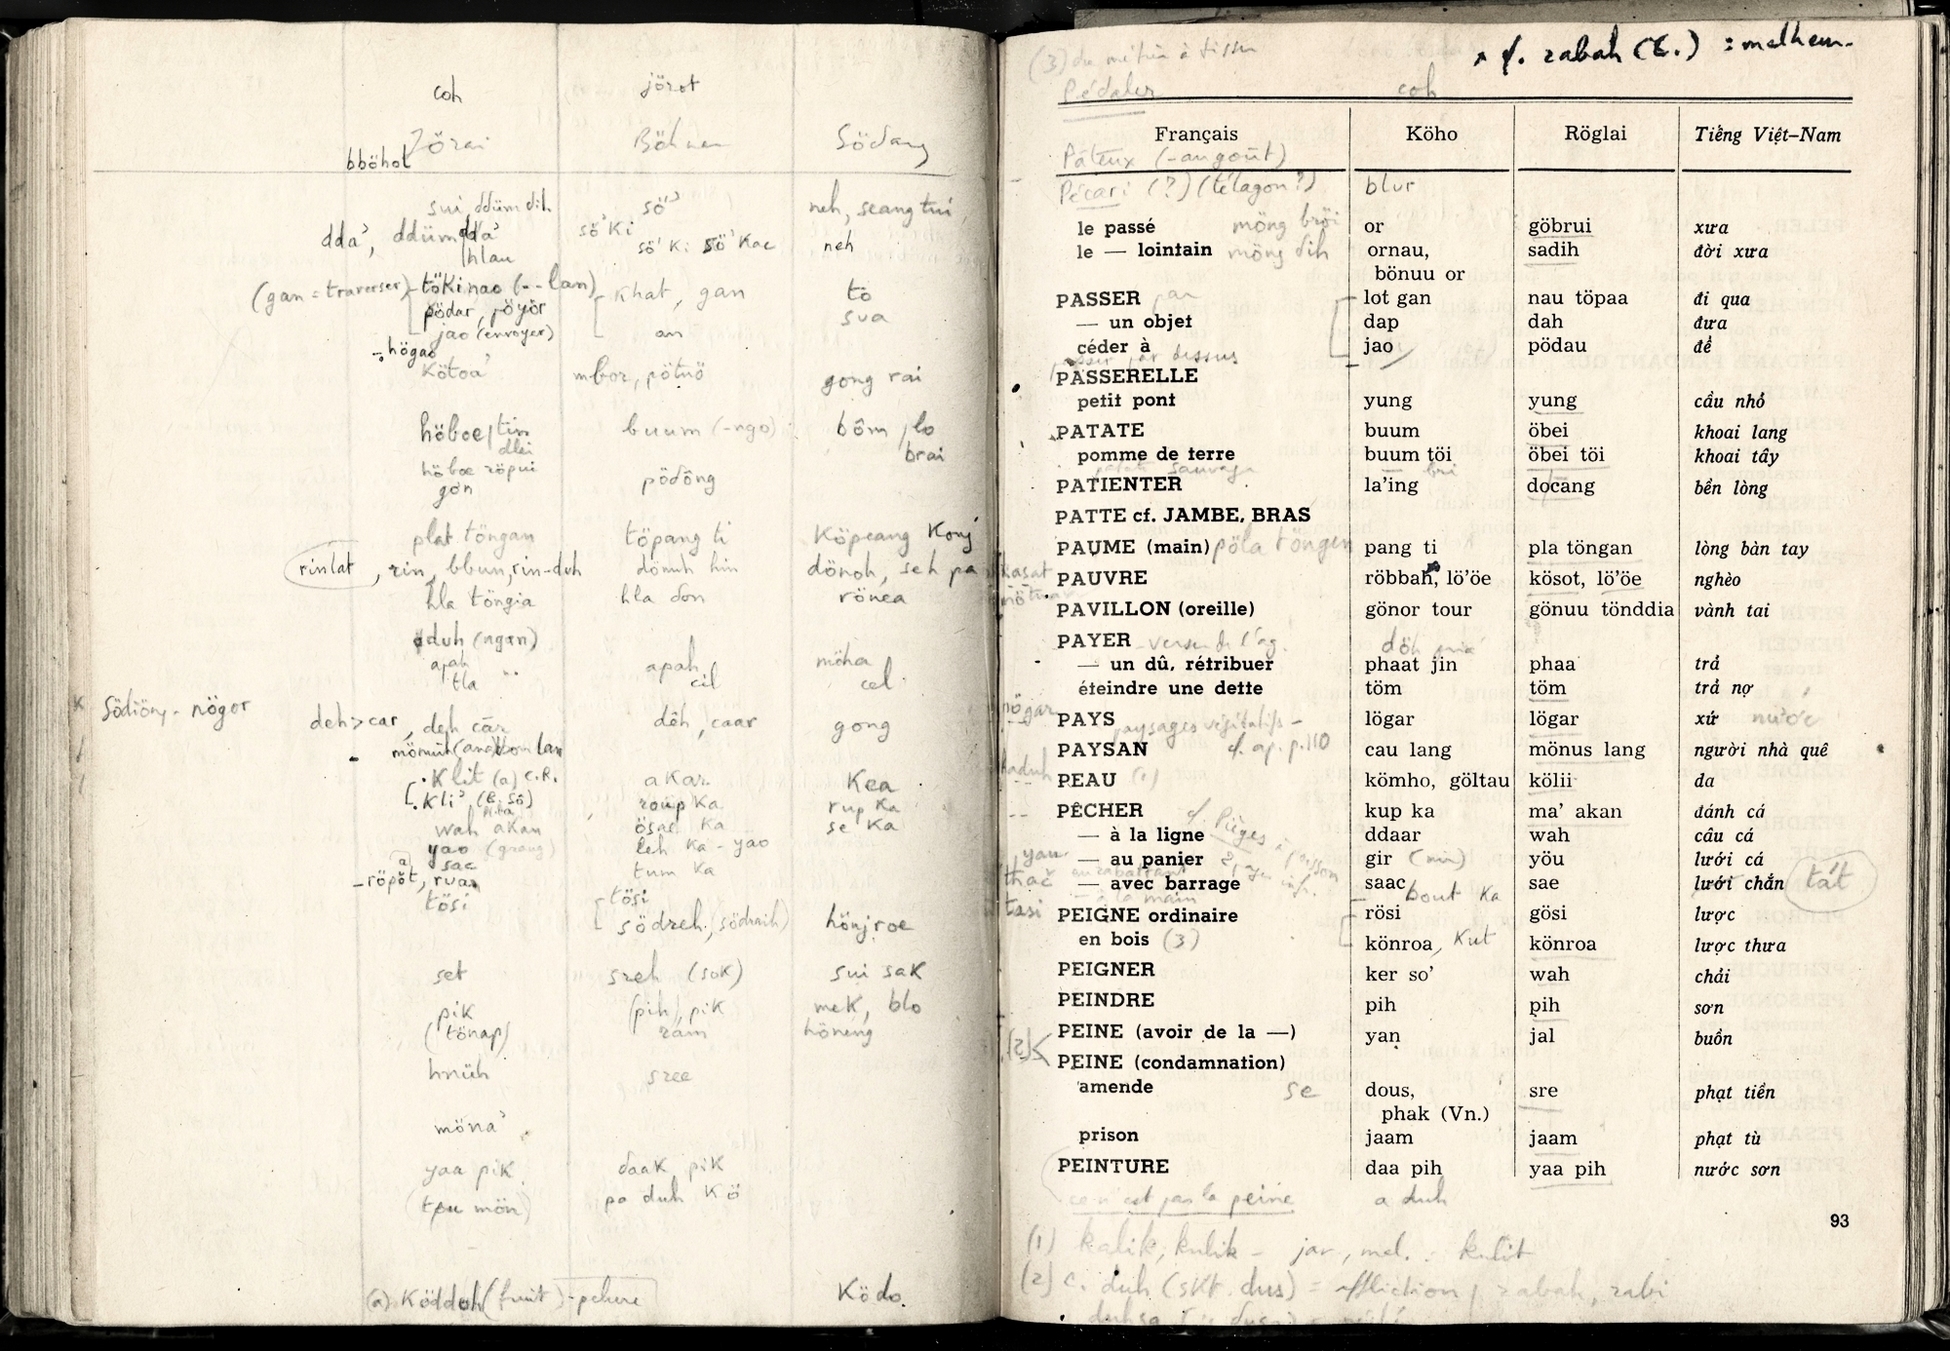 coh jörot
Jörai Böhnar Södang
bböhot
sui, ddüm dih sö' neh, seang tui,
dda', ddüm dda' sö' Ki
hlau sö' Ki sö' Kac neh
(gan = traverser) tökinao (-- lan) khat, gan tö
pödar, pöyör sua
jao (envoyer) an
högao
Kötoa' mbor, pötuö gong rai
höboe tin buum (-ngo) böm lo
dlei brai
höboe röpui
gon pödông
plat töngan töpang ti Köpeang Kong
rinlat, rin, bbun, rin-duh dönuh hin dönoh, seh pa
hla töngia hla don rönea
duh (ngan)
apah apah möha
tla cil cel
Södiöng - nögor deh>car, deh car dêh, caar gong
Klit (a) C.R. akar Kea
kli' roup Ka rup Ka
wah akan ösac Ka se Ka
yao (grang) leh Ka - yao
sac tum Ka
röpöt, ruan
tösi tösi
södreh, (södraih) hönjroe
set sreh (sok) sui sak
pik (pih), pik mek, blo
(tönap) ram höneng
hnüh sree
möna'
yaa pik daak pik
(tpu mön) pa duh Kö
(a) Köddoh (fruit) - pchere Ködo
(3) du métier à tisser x cf. rabah (C.) : malheur
Pédaler coh
Français Köho Röglai Tiếng Việt-Nam
Pâteux (- au goût)
Pécari (?) (télagon ?) blur
le passé möng bröi or göbrui xưa
le — lointain möng dih ornau, sadih đời xưa
bönuu or
PASSER lot gan nau töpaa đi qua
— un objet dap dah đưa
céder à jao pödau để
passer par dessus
PASSERELLE
petit pont yung yung cầu nhỏ
PATATE buum öbei khoai lang
pomme de terre buum töi öbei töi khoai tây
patate sauvage bri
PATIENTER la'ing docang bền lòng
PATTE cf. JAMBE, BRAS
PAUME (main) pöla töngen pang ti pla töngan lòng bàn tay
kasat PAUVRE röbbah, lö'öe kösot, lö'öe nghèo
PAVILLON (oreille) gönor tour gönuu tönddia vành tai
PAYER - verser de l'ag. döh
— un dû, rétribuer phaat jin phaa trả
éteindre une dette töm töm trả nợ
nögar PAYS lögar lögar xứ nước
paysages végétatifs -
PAYSAN cf. ap. p. 110 cau lang mönus lang người nhà quê
kaduh PEAU (1) kömho, göltau kölii da
PÊCHER cf. Pièges à poisson kup ka ma' akan đánh cá
— à la ligne ddaar wah câu cá
yau — au panier gir yöu lưới cá
— avec barrage saac sae lưới chắn tát
— à la main bout Ka
tasi PEIGNE ordinaire rösi gösi lược
en bois (3) könroa, kut könroa lược thưa
PEIGNER ker so' wah chải
PEINDRE pih pih sơn
(2) PEINE (avoir de la —) yan jal buồn
PEINE (condamnation)
amende se dous, sre phạt tiền
phak (Vn.)
prison jaam jaam phạt tù
PEINTURE daa pih yaa pih nước sơn
ce n'est pas la peine a duh
93
(1) kalik, kulik - jar, mel. : kulit
(2) c. duh (skt. dus) = affliction, rabah, rabi